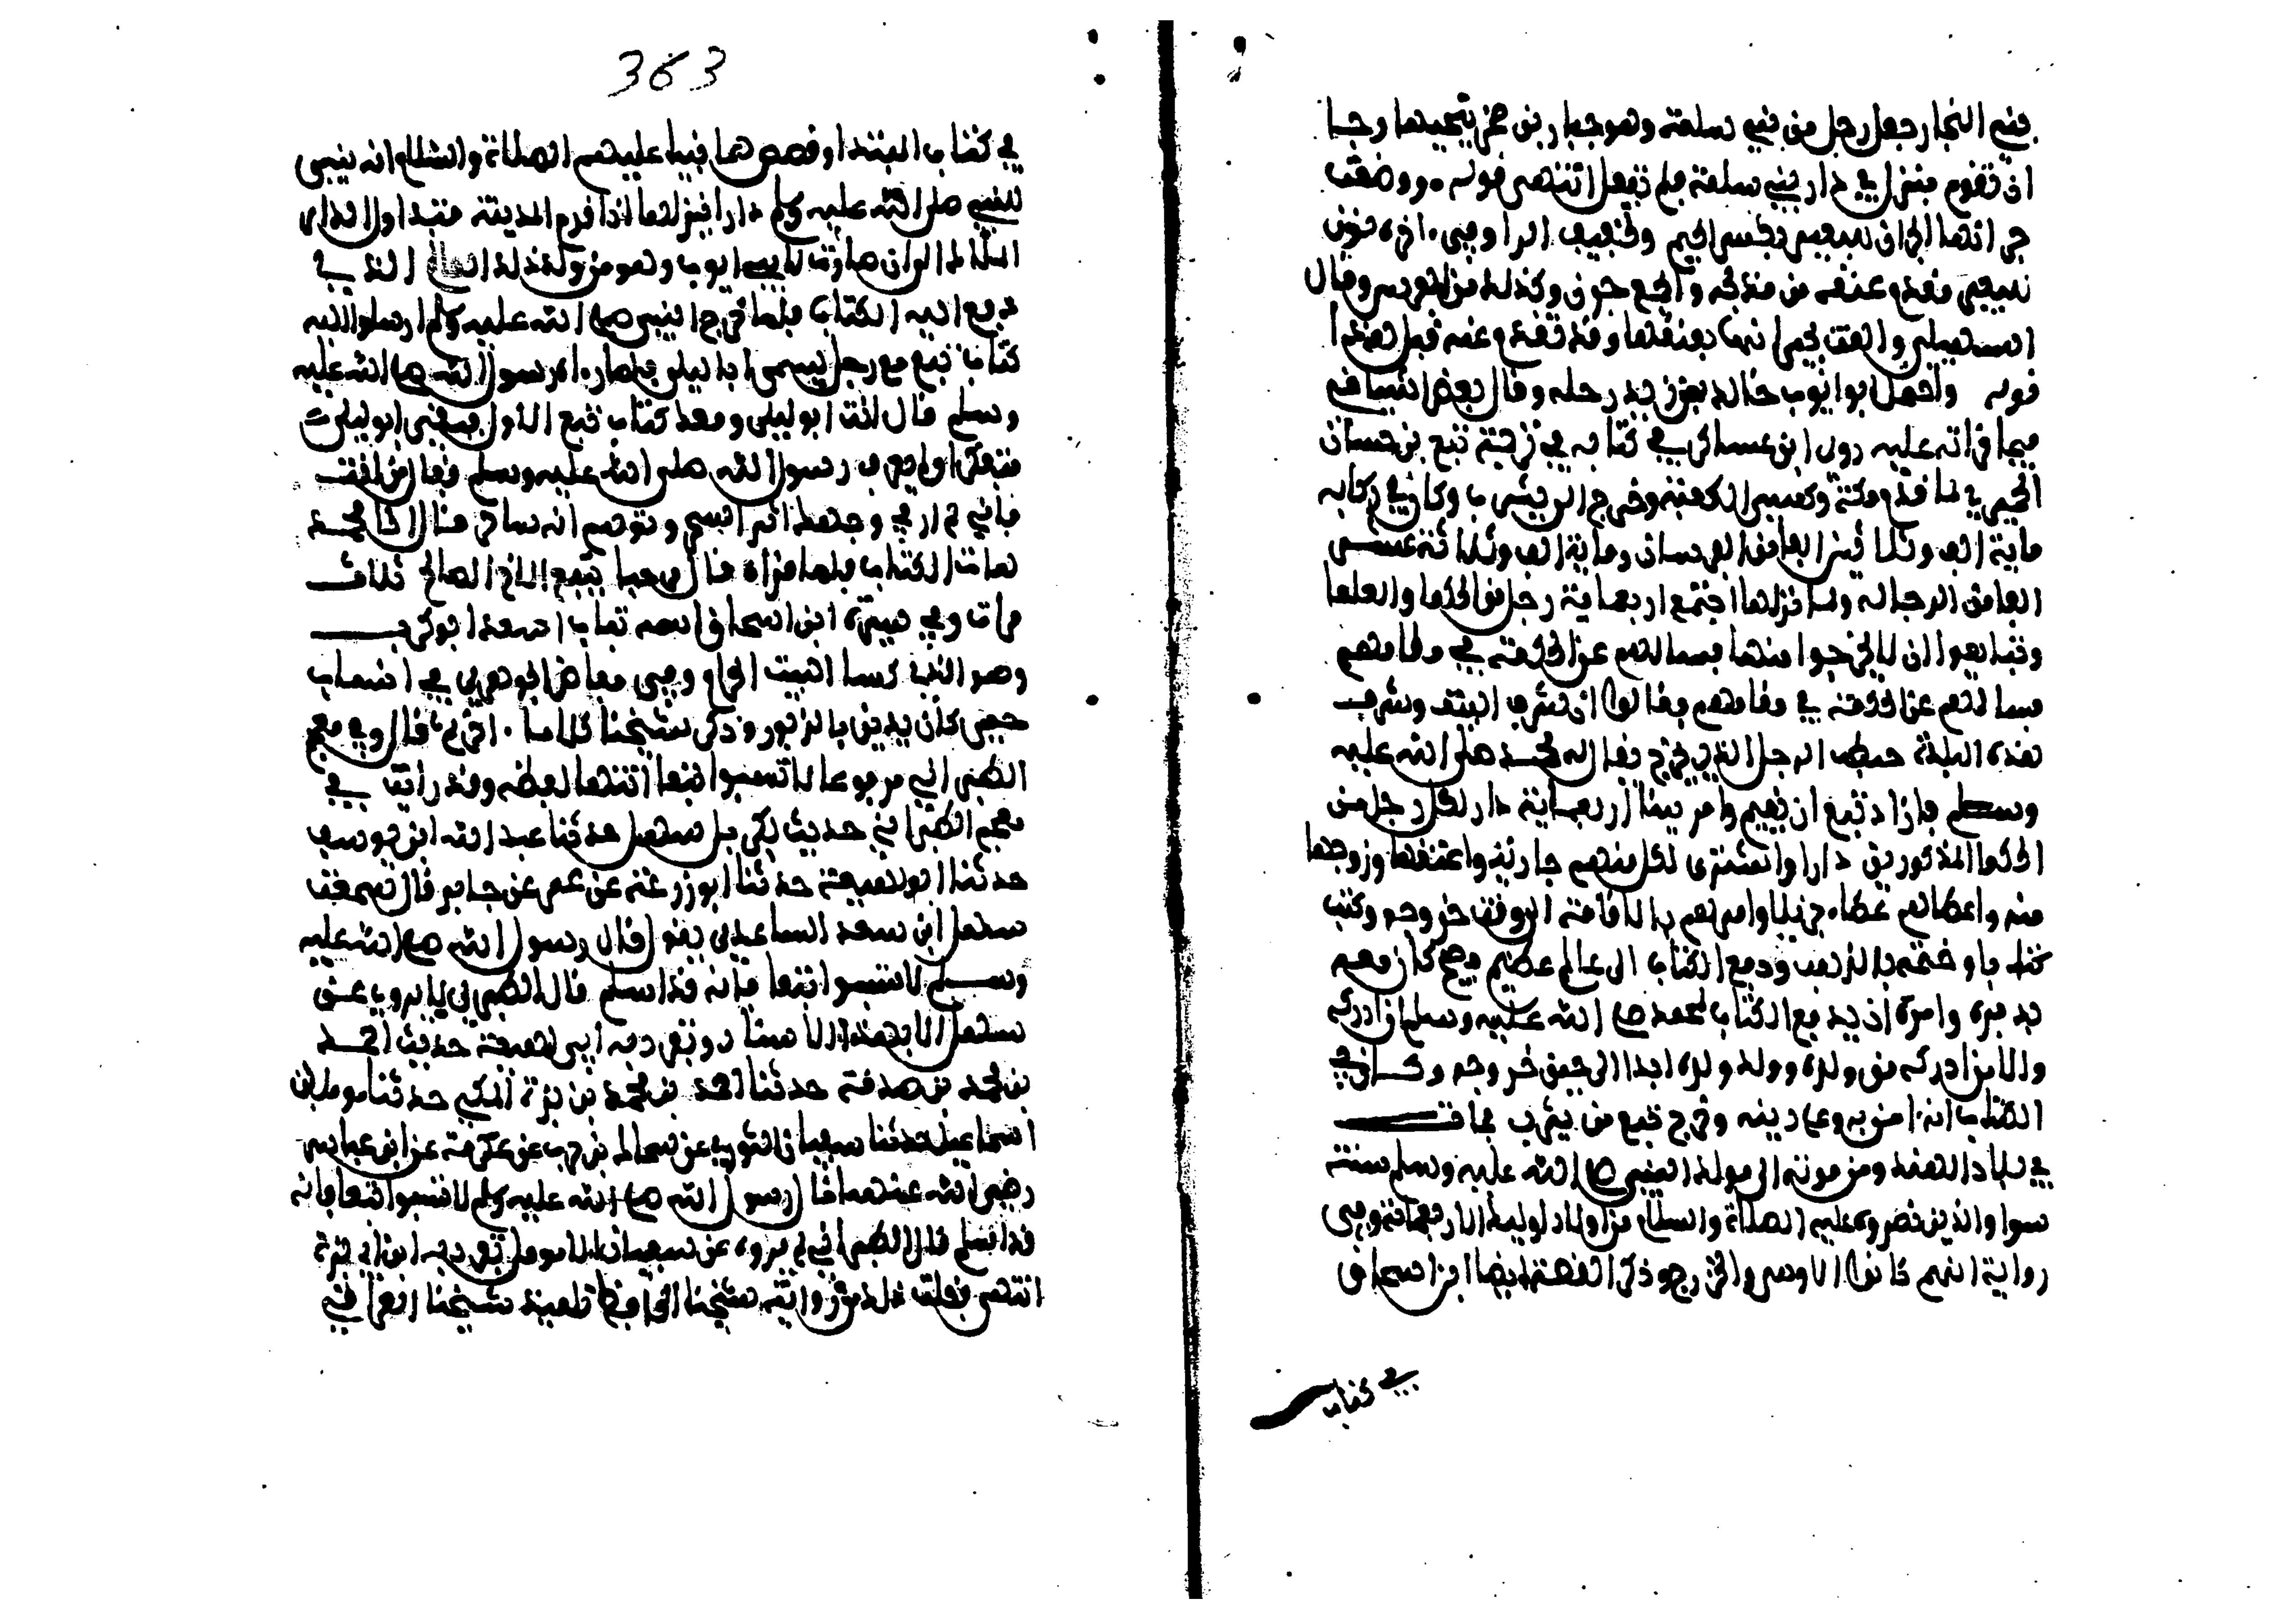 بني النجار جعل رجل من بني سلمة وهو جبار بن صخر ينخسها رجا
ان تقوم فتنزل في دار بني سلمة فلم تفعل انتهى قوله ووضعت
جرانها الجران للبعير بكسر الجيم وتخفيف الراء وفي اخره نون
للبعير مقدم عنقه من مذبحه والجمع جرن وكذلك من الفرس وقال
السهيلي والقت بجرانها بعنقها وقد تقدم عنه قبل هذا
قوله واحتمل ابو ايوب خالد بن زيد رحله وقال بعض اشياخي
فيما قراته عليه روى ابن عساكر في كتابه في ترجمة تبع بن حسان
الحميري لما قدم مكة وكسى الكعبة وخرج الى يثرب وكان في ركابه
ماية الف وثلاثين الفا من الفرسان وماية الف وثلاثة عشر
الفا من الرجالة ولما نزلها اجتمع اربعماية رجل من الحكما والعلما
وتبايعوا ان لا يخرجوا منها فسالهم عن الحكمة في مقامهم
فسالهم عن الحكمة في مقامهم فقالوا ان شرف البيت وشرف
هذه البلدة بهذا الرجل الذي يخرج يقال له محمد صلى الله عليه
وسلم فاراد تبع ان يقيم وامر ببنا اربعماية دار لكل رجل من
الحكما المذكورين دارا واشترى لكل منهم جارية واعتقها وزوجها
منه واعطاهم عطاء جزيلا وامرهم بالاقامة الى وقت خروجه وكتب
كتابا وختمه بالذهب ودفع الكتاب الى عالم عظيم فيهم كان معه
يدبره وامره ان يدفع الكتاب لمحمد صلى الله عليه وسلم ان ادركه
والا من ادركه من ولده وولد ولده ابدا الى حين خروجه وكان في
الكتاب انه امن به وعلى دينه وخرج تبع من يثرب فمات
في بلاد الهند ومن موته الى مولد النبي صلى الله عليه وسلم الف سنة
سوا والذين نصروه عليه الصلاة والسلام من اولاد اوليك الاربعماية وفي
رواية انهم كانوا الاوس والخزرج وذكر القصة ايضا ابن اسحاق
في كتاب
363
في كتاب المبتدا وقصص الانبيا عليهم الصلاة والسلام انه بنى
للنبي صلى الله عليه وسلم دارا فينزلها اذا قدم المدينة فتداول الدار
الملاك الى ان صارت لابي ايوب وهو من ولد ذلك العالم الذي
دفع اليه الكتاب فلما خرج النبي صلى الله عليه وسلم ارسلوا اليه
كتاب تبع مع رجل يسمى ابا ليلى فلما راه رسول الله صلى الله عليه
وسلم قال انت ابو ليلى ومعك كتاب تبع الاول فبقي ابو ليلى
متفكرا ولم يعرف رسول الله صلى الله عليه وسلم فقال من انت
فاني لم ار في وجهك اثر السحر وتوهم انه ساحر فقال انا محمد
هات الكتاب فلما قراه قال مرحبا بتبع الاخ الصالح ثلاث
مرات وفي سيرة ابن اسحاق اسمه تبان اسعد ابو كرب
وهو الذي كسا البيت الحرام وفي مغاص الجوهر في انساب
حمير كان يدين بالزبور وذكر شيخنا كلاما اخر ثم قال وفي معجم
الطبراني مرفوعا لا تسبوا تبعا انتهى لفظه وقد رايت في
معجم الطبراني حديثا ذكره بسهل حدثنا عبد الله ابن يوسف
حدثنا ابن لهيعة حدثنا ابو زرعة عن عمر عن جابر قال سمعت
سهل ابن سعد الساعدي يقول قال رسول الله صلى الله عليه
وسلم لا تسبوا تبعا فانه قد اسلم قال الطبراني لا يروى عن
سهل الا بهذا الاسناد وتفرد به ابن لهيعة حديث احمد
بن محمد بن صدقة حدثنا احمد بن محمد بن بزة المكي حدثنا مومل بن
اسماعيل حدثنا سفيان الثوري عن سماك بن حرب عن عكرمة عن ابن عباس
رضي الله عنهما قال رسول الله صلى الله عليه وسلم لا تسبوا تبعا فانه
قد اسلم قال الطبراني لم يروه عن سفيان الا مومل تفرد به ابن ابي بزة
انتهى وقلت ذلك من زوايد شيخنا الحافظ تلميذ شيخنا العراقي